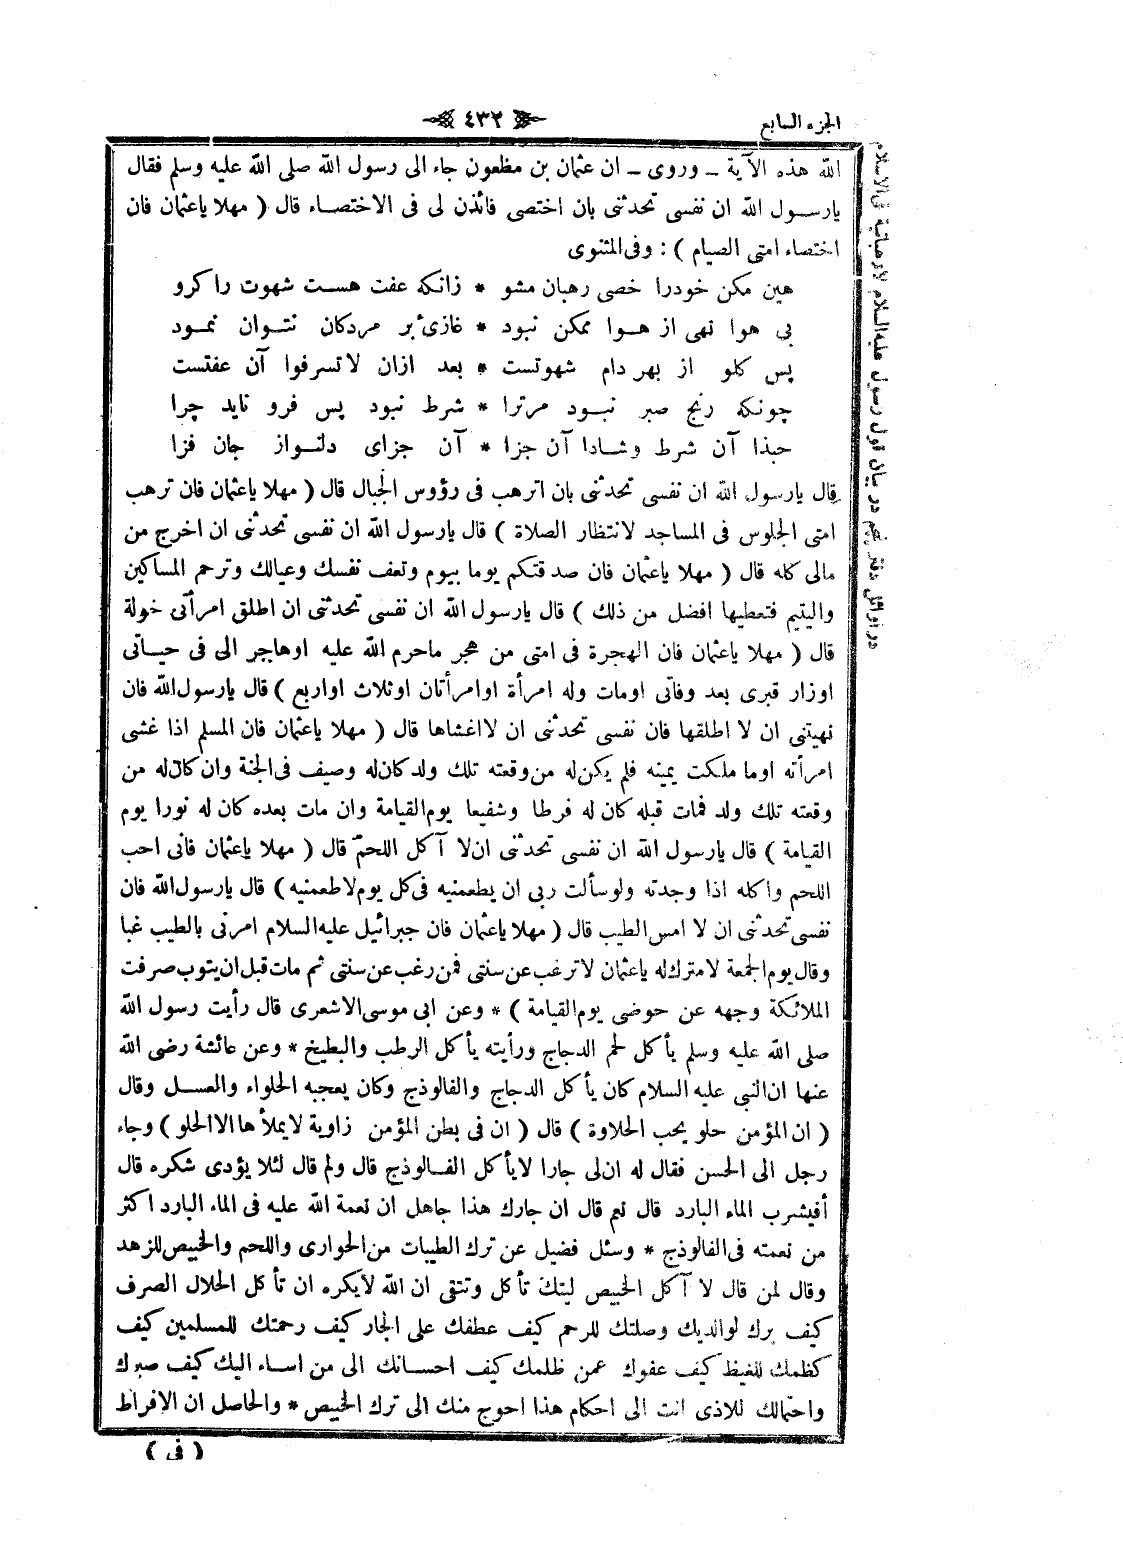 الجزء السابع
٤٣٢
الله هذه الآية ـ وروى ـ ان عثمان بن مظعون جاء الى رسول الله صلى الله عليه وسلم فقال
يارسول الله ان نفسى تحدثنى بان اختصى فائذن لى فى الاختصاء قال ( مهلا ياعثمان فان
اختصاء امتى الصيام ) : وفى المثنوى
هين مكن خودرا خصى رهبان مشو * زانكه عفت هست شهوت را كرو
بى هوا نهى از هوا ممكن نبود * غازئ بر مردكان نتوان نمود
پس كلو از بهر دام شهوتست * بعد ازان لاتسرفوا آن عفتست
چونكه رنج صبر نبود مرترا * شرط نبود پس فرو نايد چرا
حبذا آن شرط وشادا آن جزا * آن جزاى دلنواز جان فزا
قال يارسول الله ان نفسى تحدثنى بان اترهب فى رؤوس الجبال قال ( مهلا ياعثمان فان ترهب
امتى الجلوس فى المساجد لانتظار الصلاة ) قال يارسول الله ان نفسى تحدثنى ان اخرج من
مالى كله قال ( مهلا ياعثمان فان صدقتكم يوما بيوم وتعف نفسك وعيالك وترحم المساكين
واليتيم فتعطيها افضل من ذلك ) قال يارسول الله ان نفسى تحدثنى ان اطلق امرأتى خولة
قال ( مهلا ياعثمان فان الهجرة فى امتى من هجر ماحرم الله عليه اوهاجر الى فى حياتى
اوزار قبرى بعد وفاتى اومات وله امرأة اوامرأتان اوثلاث اواربع ) قال يارسول الله فان
نهيتنى ان لا اطلقها فان نفسى تحدثنى ان لااغشاها قال ( مهلا ياعثمان فان المسلم اذا غشى
امرأته اوما ملكت يمينه فلم يكن له من وقعته تلك ولد كان له وصيف فى الجنة وان كان له من
وقعته تلك ولد فمات قبله كان له فرطا وشفيعا يوم القيامة وان مات بعده كان له نورا يوم
القيامة ) قال يارسول الله ان نفسى تحدثنى ان لا آكل اللحم قال ( مهلا ياعثمان فانى احب
اللحم وآكله اذا وجدته ولوسألت ربى ان يطعمنيه فى كل يوم لاطعمنيه ) قال يارسول الله فان
نفسى تحدثنى ان لا امس الطيب قال ( مهلا ياعثمان فان جبرائيل عليه السلام امرنى بالطيب غبا
وقال يوم الجمعة لامترك له ياعثمان لاترغب عن سنتى فمن رغب عن سنتى ثم مات قبل ان يتوب صرفت
الملائكة وجهه عن حوضى يوم القيامة ) * وعن ابى موسى الاشعرى قال رأيت رسول الله
صلى الله عليه وسلم يأكل لحم الدجاج ورأيته يأكل الرطب والبطيخ * وعن عائشة رضى الله
عنها ان النبى عليه السلام كان يأكل الدجاج والفالوذج وكان يعجبه الحلواء والعسل وقال
( ان المؤمن حلو يحب الحلاوة ) قال ( ان فى بطن المؤمن زاوية لايملأها الا الحلو ) وجاء
رجل الى الحسن فقال له ان لى جارا لايأكل الفالوذج قال ولم قال لئلا يؤدى شكره قال
أفيشرب الماء البارد قال نعم قال ان جارك هذا جاهل ان نعمة الله عليه فى الماء البارد اكثر
من نعمته فى الفالوذج * وسئل فضيل عن ترك الطيبات من الحوارى واللحم والخبيص للزهد
وقال لمن قال لا آكل الخبيص ليتك تأكل وتتقى ان الله لايكره ان تأكل الحلال الصرف
كيف برك لوالديك وصلتك للرحم كيف عطفك على الجار كيف رحمتك للمسلمين كيف
كظمك للغيظ كيف عفوك عمن ظلمك كيف احسانك الى من اساء اليك كيف صبرك
واحتمالك للاذى انت الى احكام هذا احوج منك الى ترك الخبيص * والحاصل ان الافراط
( فى )
در اوائل دفتر پنجم در بيان قول رسول عليه السلام لا رهبانية فى الاسلام